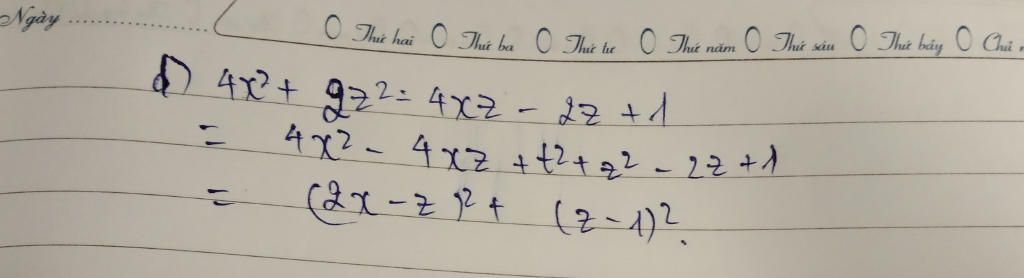 Ngày ..................... Thứ hai Thứ ba Thứ tư Thứ năm Thứ sáu Thứ bảy Chủ
d) 4x² + 2z² = 4xz - 2z + 1
= 4x² - 4xz + t² + z² - 2z + 1
= (2x - z)² + (z - 1)².